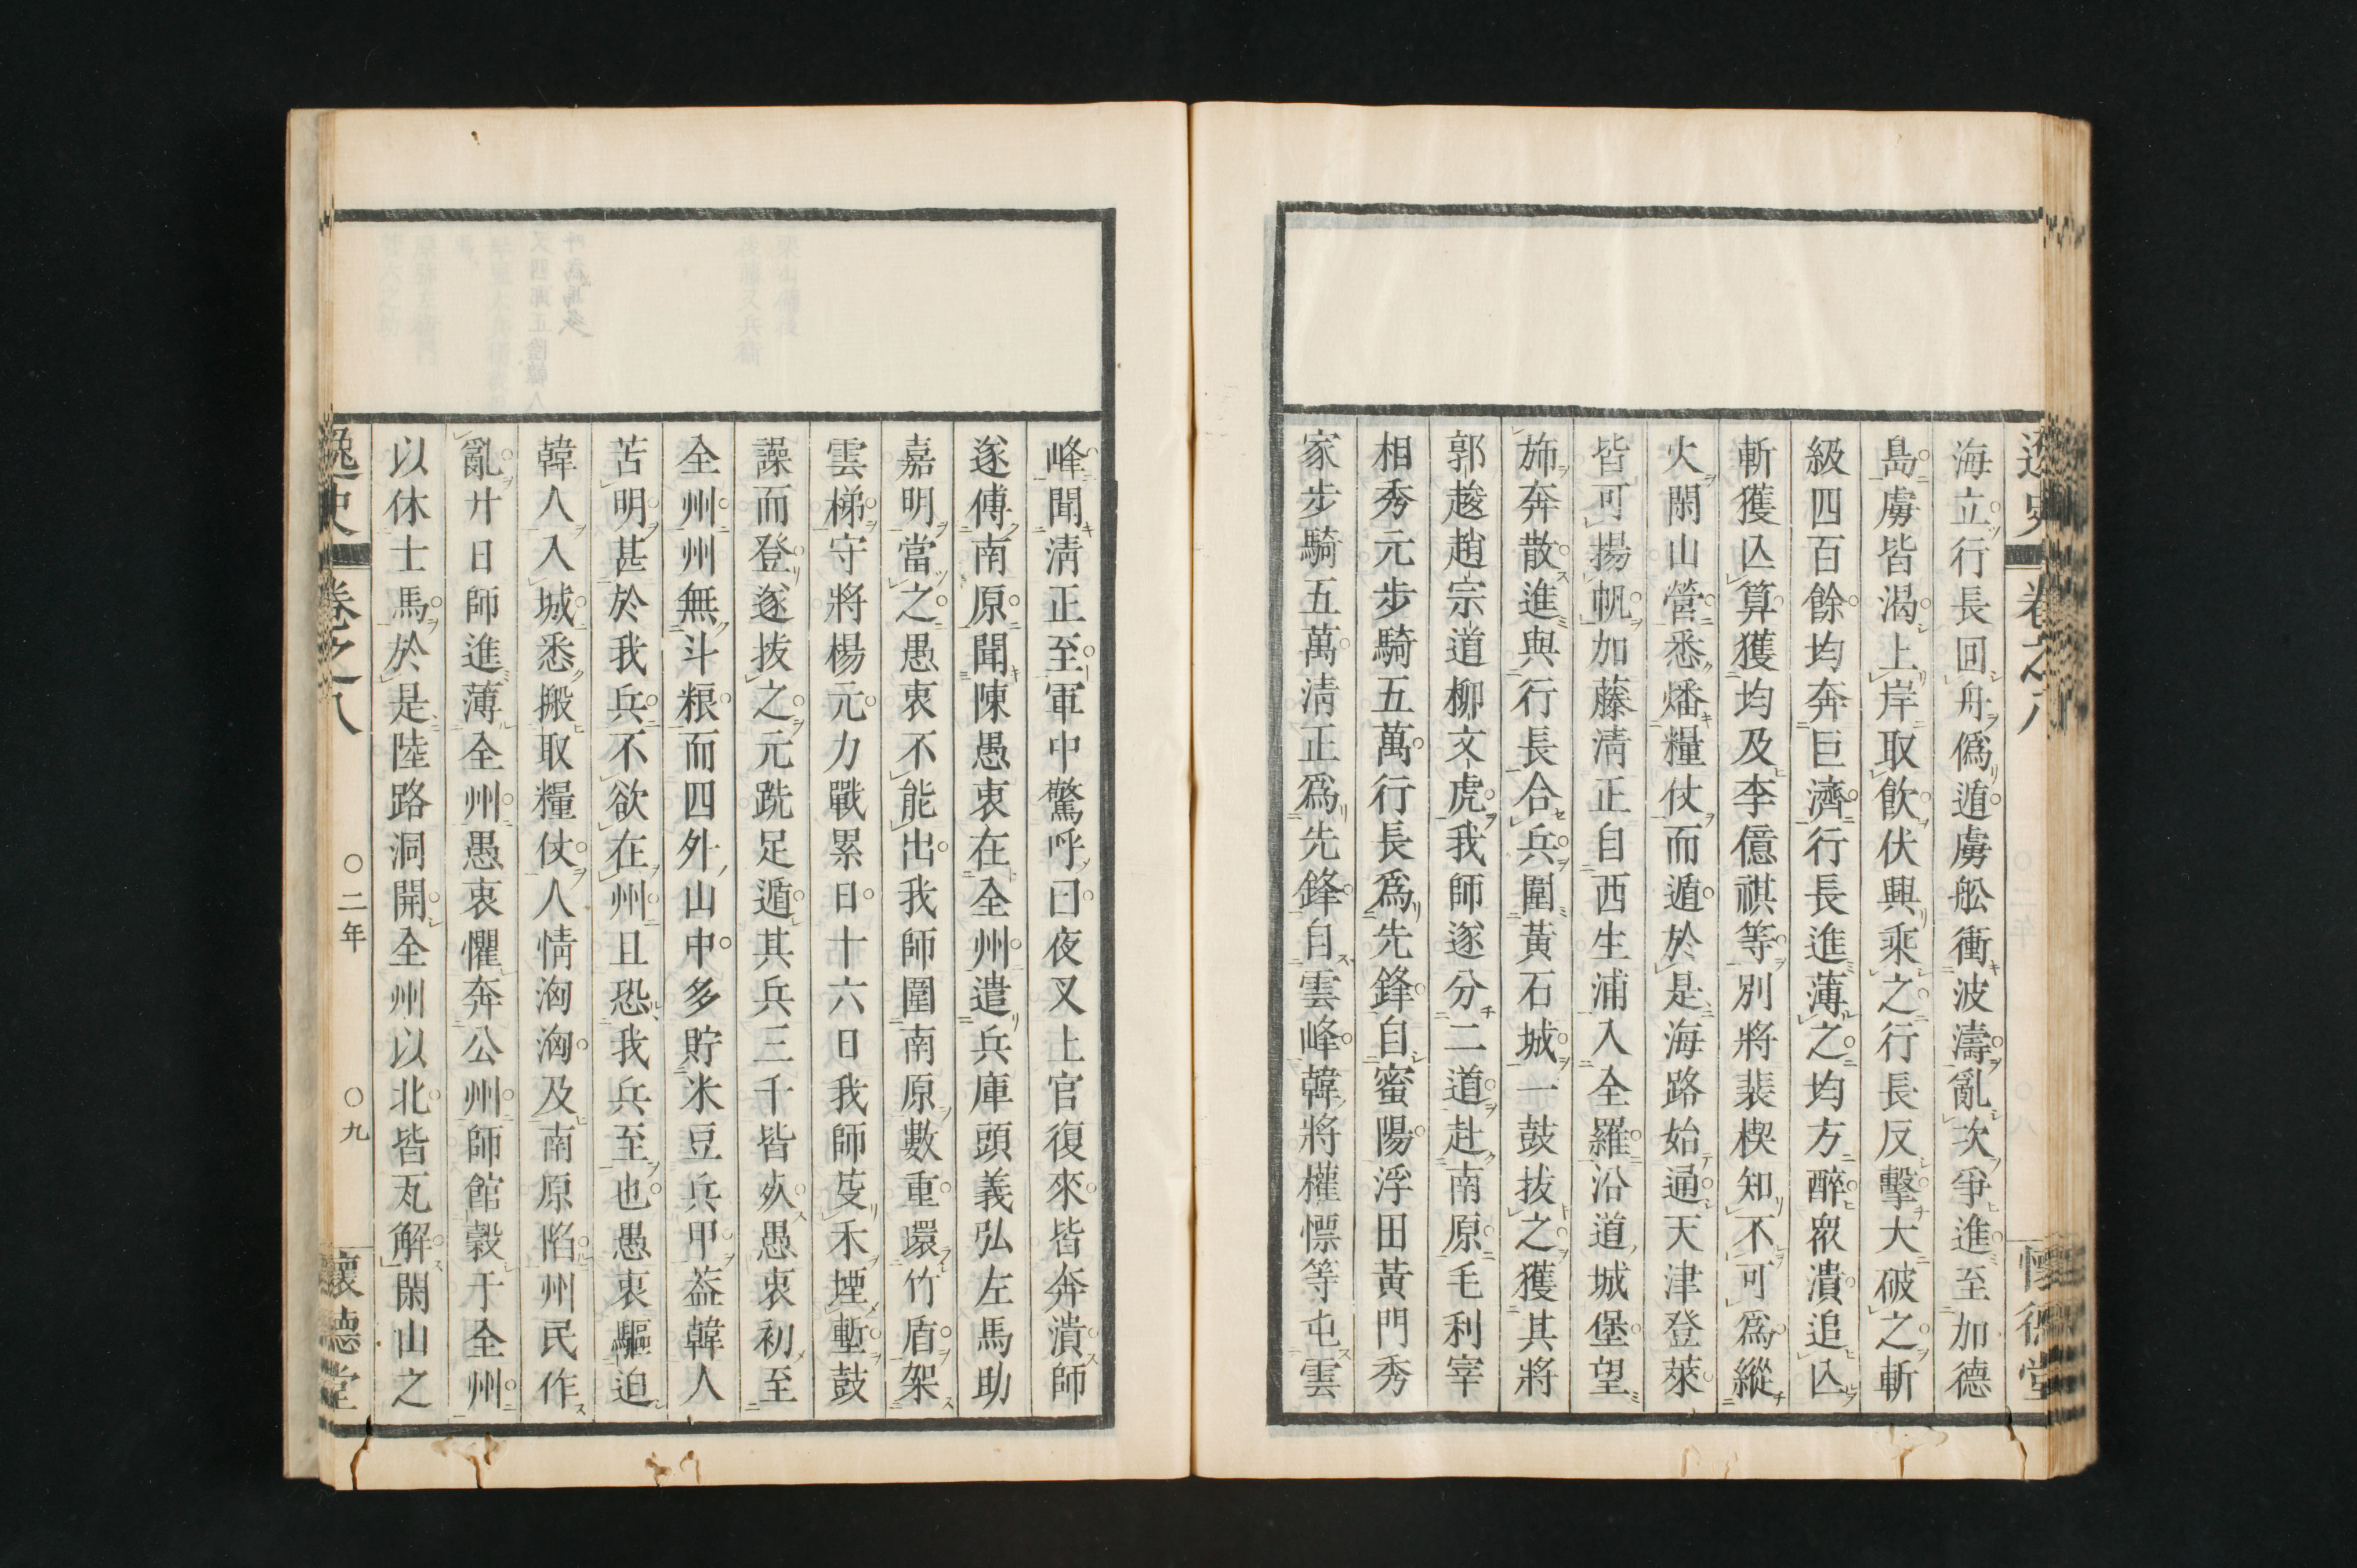 逸史 卷之八 懷德堂
海立行長回舟僞遁虜舩衝波濤亂次爭進至加德
島虜皆渴上岸取飮伏興乘之行長反擊大破之斬
級四百餘均奔巨濟行長進薄之均方醉衆潰追亾
斬獲亾算獲均及李億祺等別將裴楔知不可爲縱
火閑山營悉燔糧仗而遁於是海路始通天津登萊
皆可揚帆加藤淸正自西生浦入全羅沿道城堡望
斾奔散進與行長合兵圍黃石城一鼓拔之獲其將
郭䞭趙宗道柳文虎我師遂分二道赴南原毛利宰
相秀元步騎五萬行長爲先鋒自蜜陽浮田黃門秀
家步騎五萬淸正爲先鋒自雲峰韓將權慓等屯雲
峰聞淸正至軍中驚呼曰夜叉上官復來皆奔潰師
遂傅南原聞陳愚衷在全州遣兵庫頭義弘左馬助
嘉明當之愚衷不能出我師圍南原數重環竹盾架
雲梯守將楊元力戰累日十六日我師芟禾堙塹鼓
譟而登遂拔之元跣足遁其兵三千皆㷀愚衷初至
全州州無斗粮而四外山中多貯米豆兵甲葢韓人
苦明甚於我兵不欲在州且恐我兵至也愚衷驅迫
韓人入城悉搬取糧仗人情洶洶及南原陷州民作
亂廾日師進薄全州愚衷懼奔公州師館穀于全州
以休士馬於是陸路洞開全州以北皆瓦解閑山之
逸史 卷之八 〇二年 〇九 懷德堂